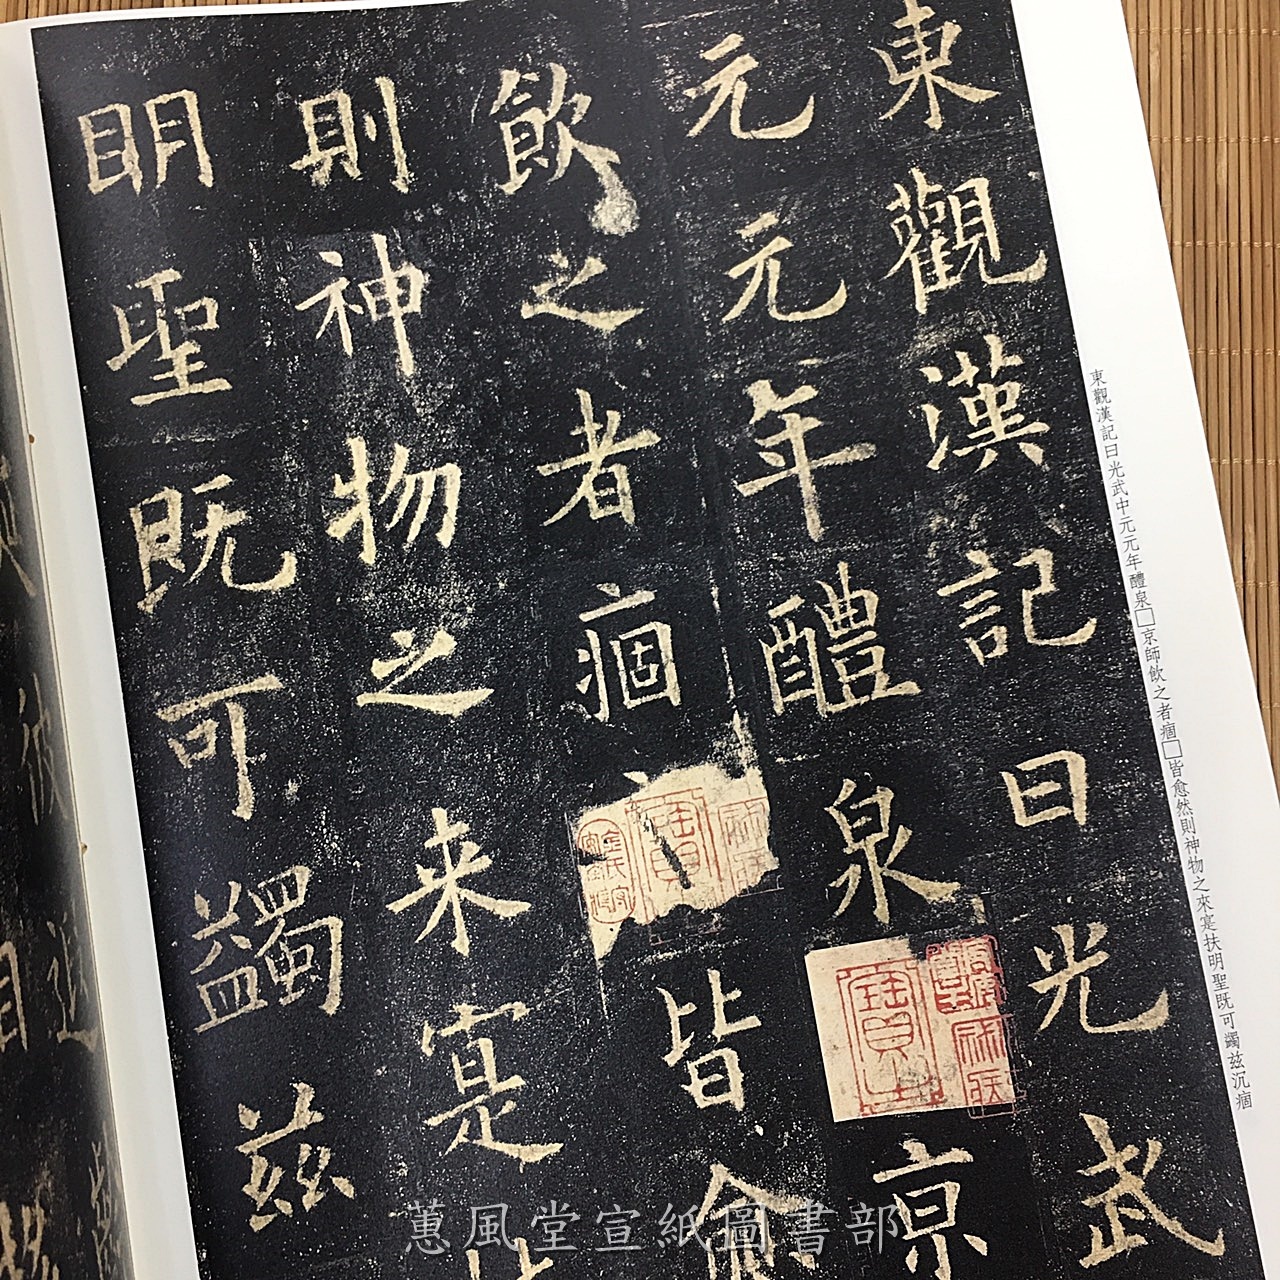 東觀漢記曰光武
元元年醴泉京
飲之者痼皆愈
則神物之来寔
明聖既可蠲兹
東觀漢記曰光武中元元年醴泉□京師飲之者痼□皆愈然則神物之來寔扶明聖既可蠲兹沉痼
蕙風堂宣紙圖書部